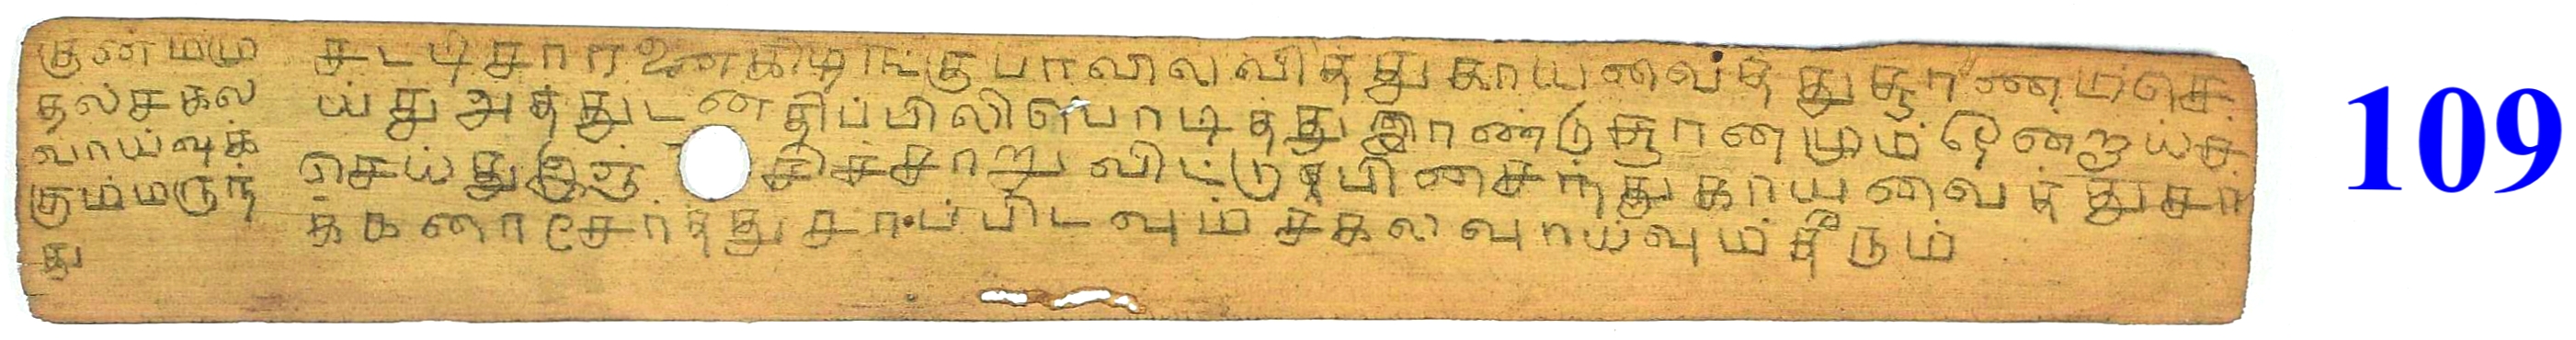 குன்மமு
தல்சகல
வாய்வுக்
கும்மருந்
து
சடடிசாரணைகிழங்குபாவிலவித்துகாயவைத்துசூரணம்செ
ய்துஅத்துடனதிப்பிலிபொடித்துஇரண்டுசூரணமும்ஒன்றாய்ச்
செய்துஇஞ்சிச்சாறுவிட்டுபிசைந்துகாயவைத்துசர
க்கரைசேர்த்துசாப்பிடவும்சகலவாய்வும்தீரும்
109